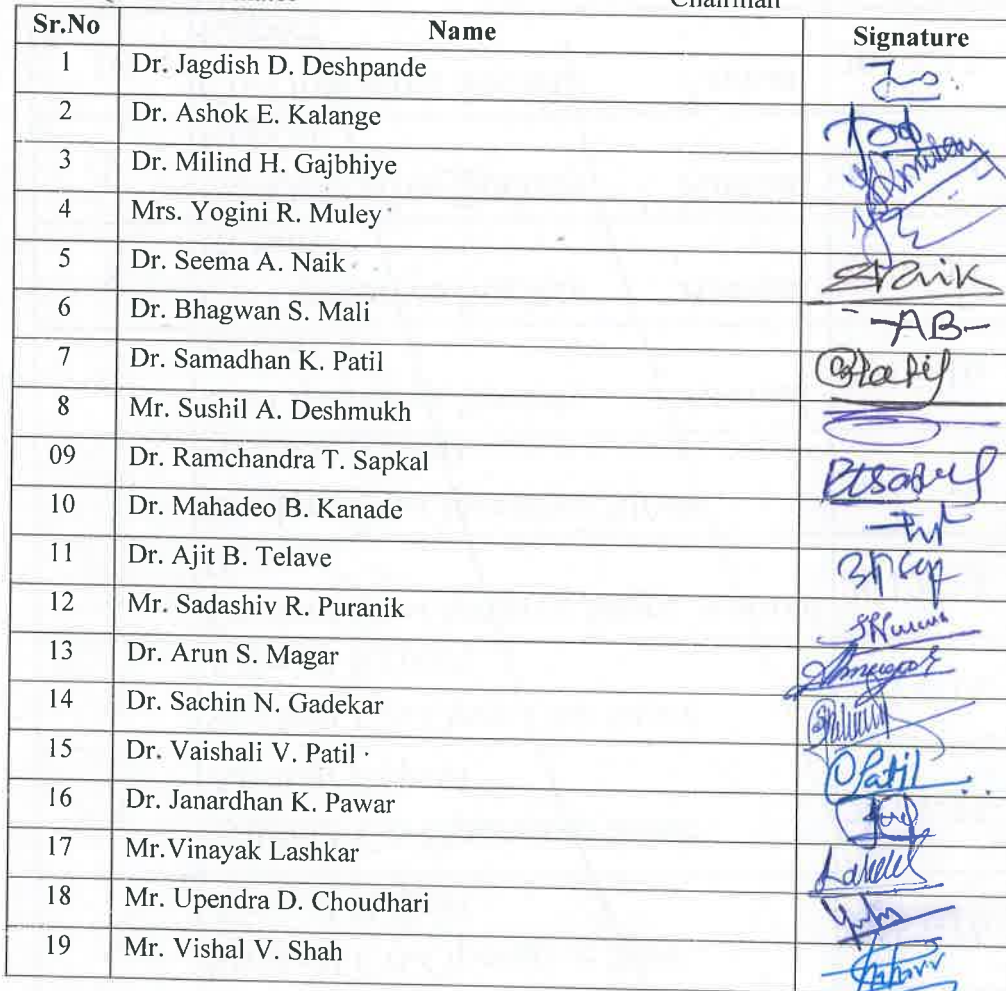 Chairman
Sr.No Name Signature
1 Dr. Jagdish D. Deshpande
2 Dr. Ashok E. Kalange
3 Dr. Milind H. Gajbhiye
4 Mrs. Yogini R. Muley
5 Dr. Seema A. Naik
6 Dr. Bhagwan S. Mali -AB-
7 Dr. Samadhan K. Patil
8 Mr. Sushil A. Deshmukh
09 Dr. Ramchandra T. Sapkal
10 Dr. Mahadeo B. Kanade
11 Dr. Ajit B. Telave
12 Mr. Sadashiv R. Puranik
13 Dr. Arun S. Magar
14 Dr. Sachin N. Gadekar
15 Dr. Vaishali V. Patil Patil
16 Dr. Janardhan K. Pawar
17 Mr.Vinayak Lashkar
18 Mr. Upendra D. Choudhari
19 Mr. Vishal V. Shah